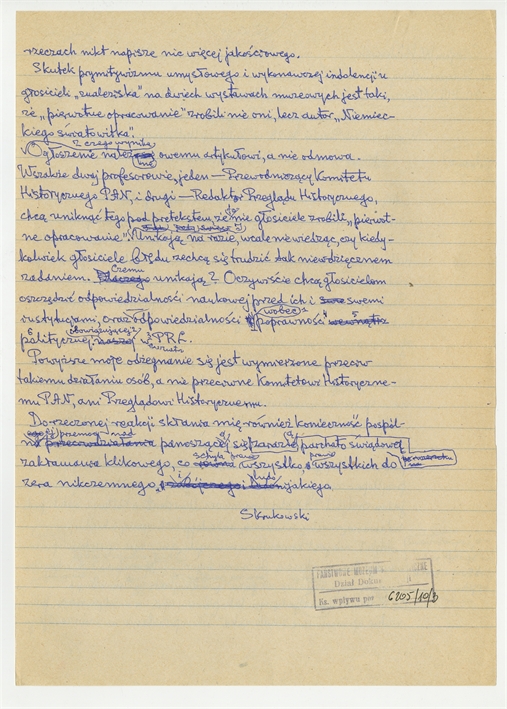 rzeczach nikt napisze nic więcej jakościowego.
Skutek prymitywizmu umysłowego i wykonawczej indolencji u
głosicieli „znaleziska” na dwiech wystawach muzeowych jest taki,
że „pierwotne opracowanie” zrobili nie oni, lecz autor „Niemiec-
kiego światowitka”.
z czego wynika
Ogłoszenie należy się owemu artykułowi, a nie odmowa.
Wszakże dwaj profesorowie, jeden — Przewodniczący Komitetu
Historycznego P.A.N., i drugi — Redaktor Przeglądu Historycznego,
chcą uniknąć tego pod pretekstem, że nie głosiciele zrobili „pierwot-
ne opracowanie”. Unikają na razie, wcale nie wiedząc, czy kiedy-
kolwiek głosiciele błędu zechcą się trudzić tak niewdzięcznem
Czemu
zadaniem. unikają? Oczywiście chcą głosicielom
oszczędzić odpowiedzialności naukowej przed ich i swemi
wobec
instytucjami, oraz odpowiedzialności poprawności
obowiązującej
politycznej, w PRL.
Powyższe moje odżegnanie się jest wymierzone przeciw
takiemu działaniu osób, a nie przeciwne Komitetowi Historyczne-
mu P.A.N., ani Przeglądowi Historycznemu.
Do rzeczonej reakcji skłania mię również konieczność pospól-
przemogi nad
panoszącej się zarazie parchato świądowej
zakłamawa klikowego, co wszystko wszystkich do
zera nikczemnego, i nijakiego
Skrukowski
PAŃSTWOWE MUZEUM
Dział Doku
Ks. wpływu poz 6205/10/3